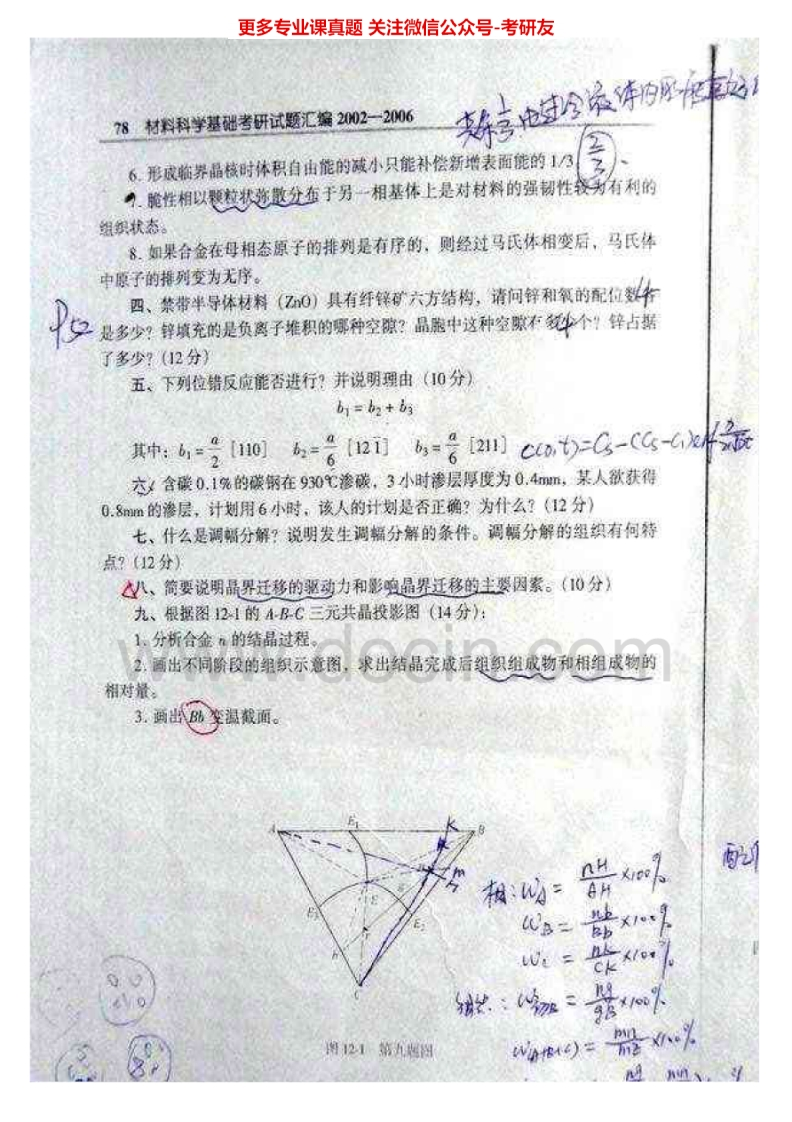 更多专业课真题 关注微信公众号-考研友
78 材料科学基础考研试题汇编 2002—2006
6. 形成临界晶核时体积自由能的减小只能补偿新增表面能的 1/3
2/3
7. 脆性相以颗粒状弥散分布于另一相基体上是对材料的强韧性较为有利的
组织状态。
8. 如果合金在母相态原子的排列是有序的，则经过马氏体相变后，马氏体
中原子的排列变为无序。
四、禁带半导体材料（ZnO）具有纤锌矿六方结构，请问锌和氧的配位数各
P52
4
是多少？锌填充的是负离子堆积的哪种空隙？晶胞中这种空隙有多少个？锌占据
4
了多少？(12 分)
五、下列位错反应能否进行？并说明理由（10 分）
b₁ = b₂ + b₃
其中：b₁ = a/2 [110] b₂ = a/6 [121] b₃ = a/6 [211]
六、含碳 0.1%的碳钢在 930℃渗碳，3 小时渗层厚度为 0.4mm，某人欲获得
0.8mm 的渗层，计划用 6 小时，该人的计划是否正确？为什么？(12 分)
七、什么是调幅分解？说明发生调幅分解的条件。调幅分解的组织有何特
点？(12 分)
八、简要说明晶界迁移的驱动力和影响晶界迁移的主要因素。(10 分)
九、根据图 12-1 的 A-B-C 三元共晶投影图（14 分）：
1. 分析合金 n 的结晶过程。
www.docin.com
2. 画出不同阶段的组织示意图，求出结晶完成后组织组成物和相组成物的
相对量。
3. 画出 Bb 变温截面。
A E₁ K B
n m
H
E g
E₃ E₂
f
b
C
相：W_A = nH/AH ×100%
W_B = nb/Bb ×100%
W_C = nK/CK ×100%
= ng/gB ×100%
W(A+B+C) = mn/mE ×100%
图 12-1 第九题图